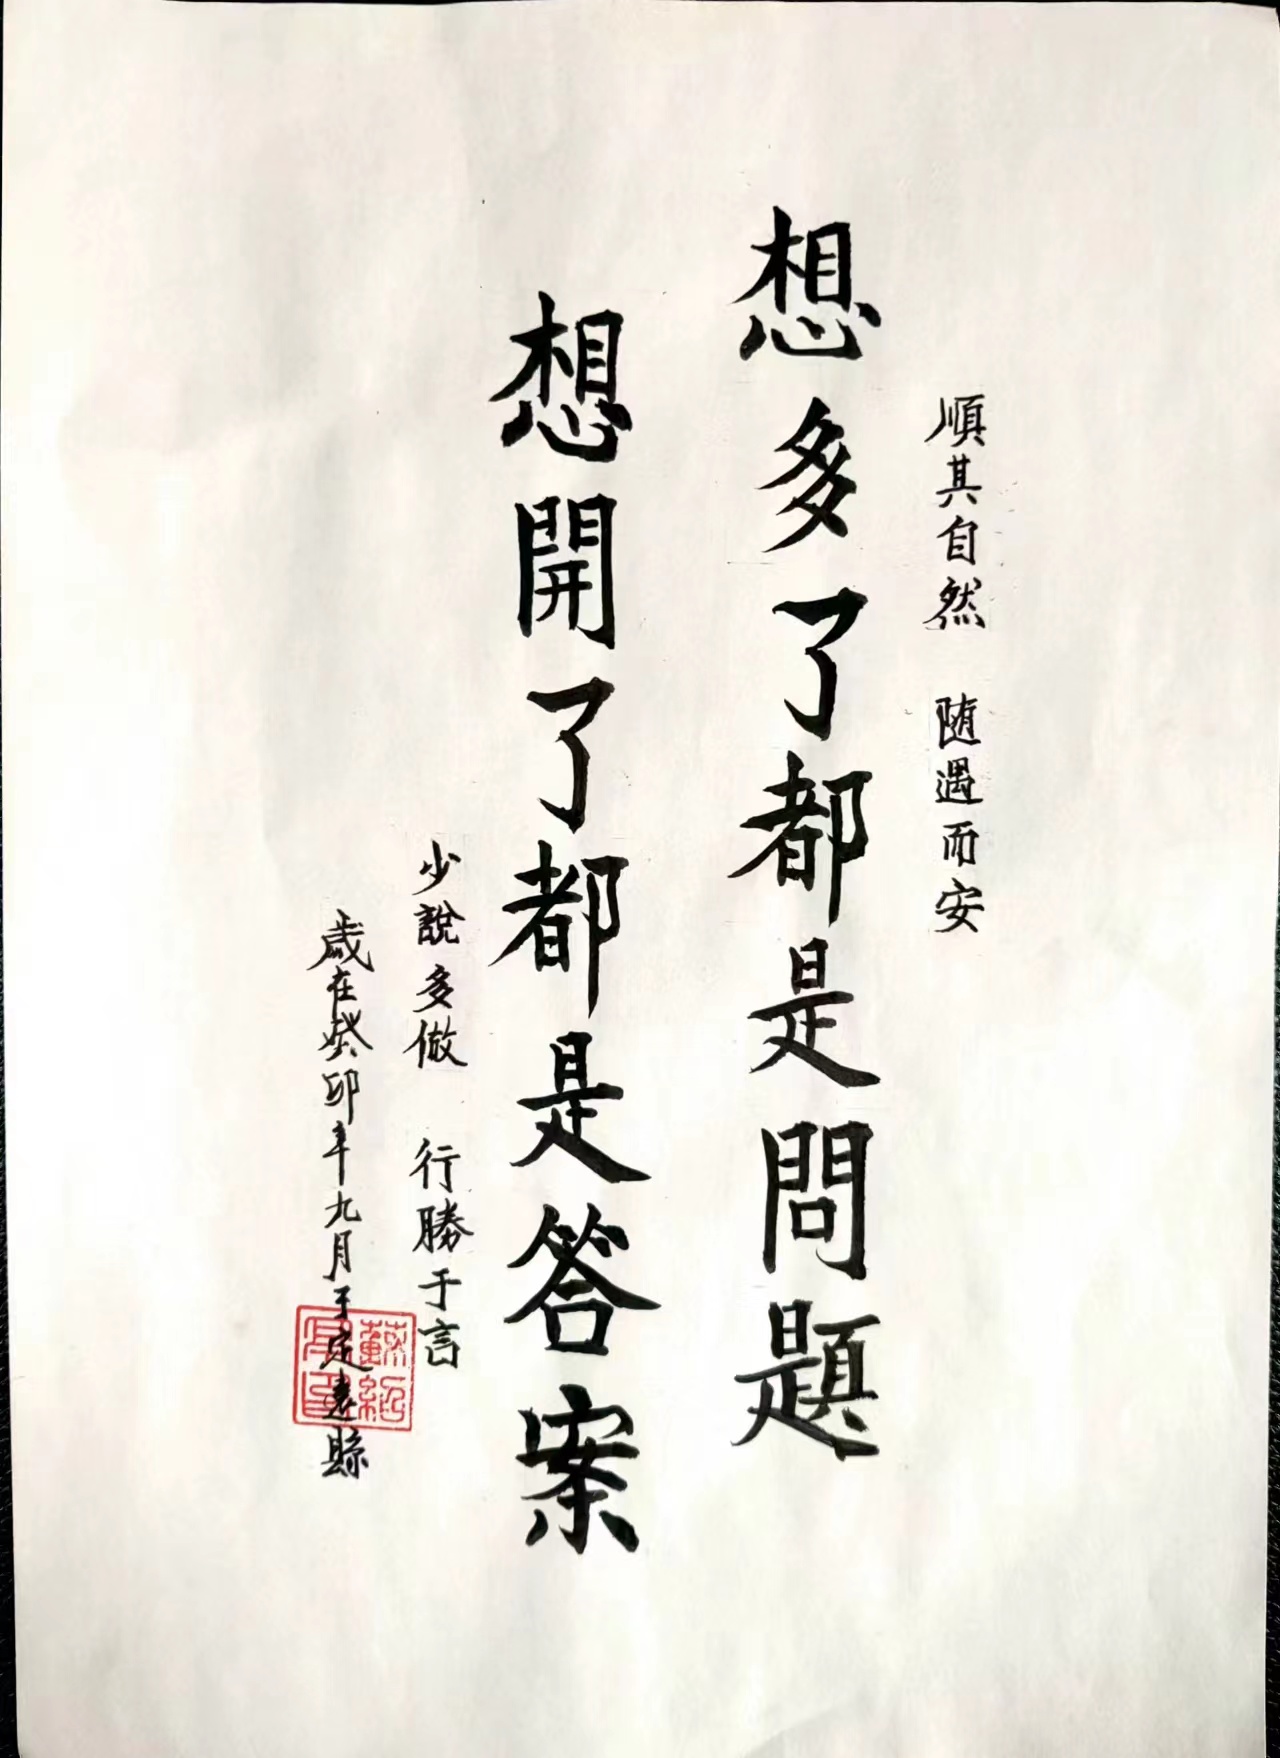 順其自然 随遇而安
想多了都是問題
想開了都是答案
少說多做 行勝于言
歲在癸卯年九月于定遠縣